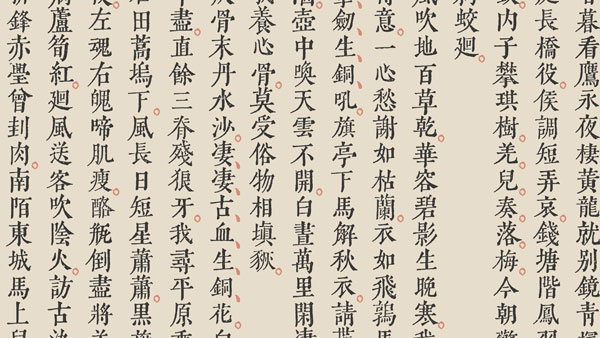 暮看鷹永夜棲黃龍就別鏡青
長橋役侯調短弄哀錢塘階鳳羽
内子攀琪樹羌兒奏落梅今朝
蛟廻
風吹地百草乾華容碧影生晚寒我
意一心愁謝如枯蘭衣如飛鶉馬
劒生銅吼旗亭下馬解秋衣請
壺中喚天雲不開白晝萬里閒凄
養心骨莫受俗物相塡豥
骨末丹水沙凄凄古血生銅花白
盡直餘三脊殘狠牙我尋平原乘
田蒿塢下風長日短星蕭蕭黑旗
左魂右魄啼肌瘦酪瓶倒盡將羊
蘆筍紅廻風送客吹陰火訪古
鋒赤璺曾刲肉南陌東城馬上兒